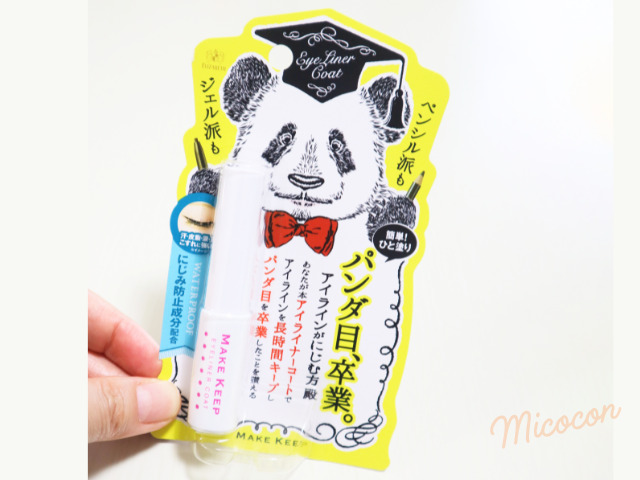 Eye Liner
Coat
ペンシル派も
ジェル派も
簡単!
ひと塗り
パンダ目、卒業。
アイラインがにじむ方 殿
あなたが本アイライナーコートで
アイラインを長時間キープし
パンダ目を卒業したことを讃える
WATERPROOF
にじみ防止成分配合
MAKE KEEP
EYELINER COAT
MAKE KEE
Micocon